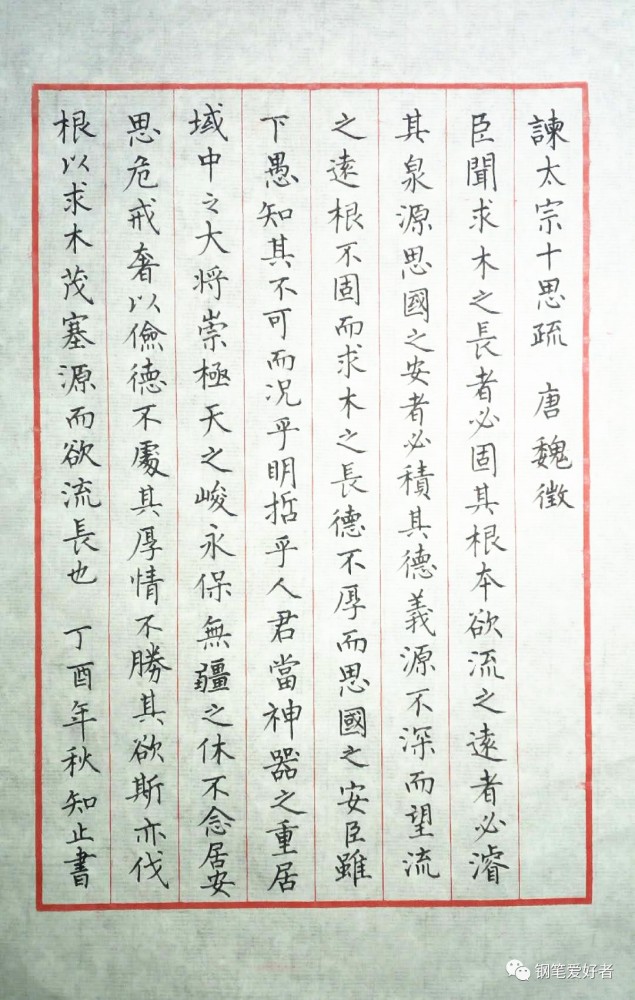 諫太宗十思疏 唐魏徵
臣聞求木之長者必固其根本欲流之遠者必濬
其泉源思國之安者必積其德義源不深而望流
之遠根不固而求木之長德不厚而思國之安臣雖
下愚知其不可而况乎明哲乎人君當神器之重居
域中之大将崇極天之峻永保無疆之休不念居安
思危戒奢以儉德不處其厚情不勝其欲斯亦伐
根以求木茂塞源而欲流長也 丁酉年秋知止書
钢笔爱好者